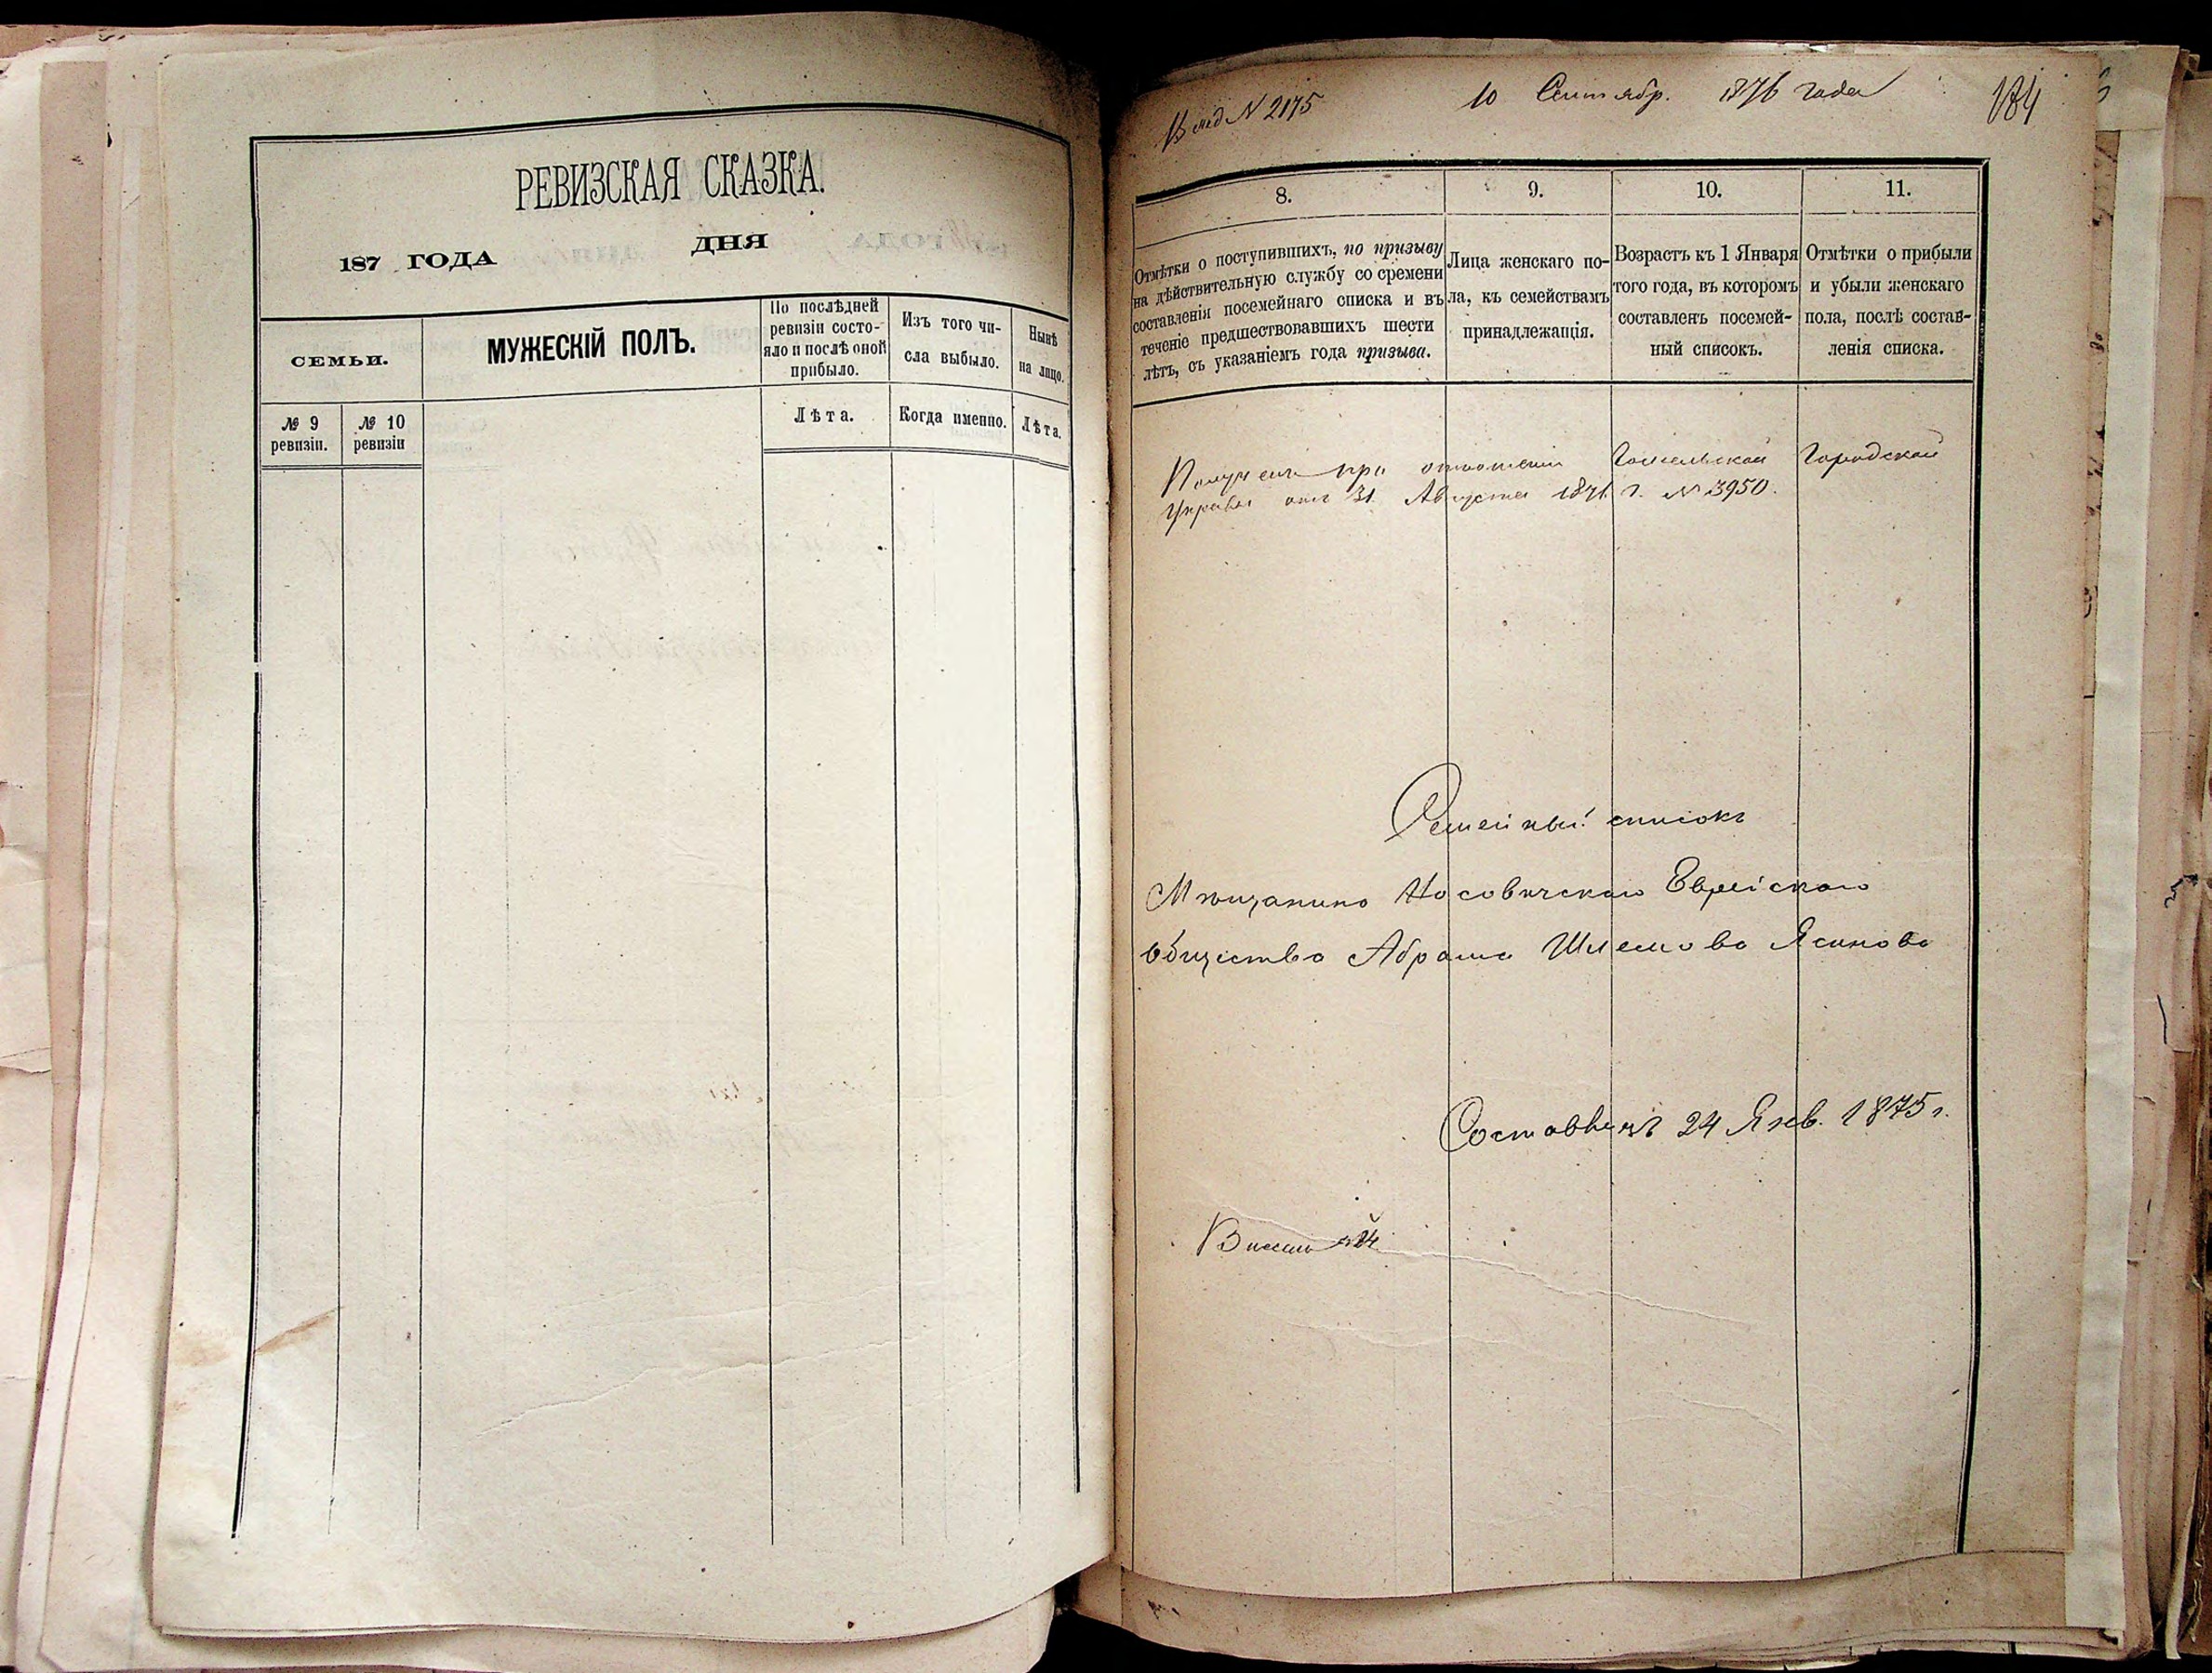 РЕВИЗСКАЯ СКАЗКА.
187 ГОДА ДНЯ
СЕМЬИ.
МУЖЕСКІЙ ПОЛЪ.
По послѣдней
ревизіи состо-
яло и послѣ оной
прибыло.
Изъ того чи-
сла выбыло.
Нынѣ
на лицо.
№ 9
ревизіи.
№ 10
ревизіи
Лѣта.
Когда именно.
Лѣта.
№ 2175
10 Сентябр. 1876 года
184
8.
9.
10.
11.
Отмѣтки о поступившихъ, по призыву
на дѣйствительную службу со сремени
составленія посемейнаго списка и въ
теченіе предшествовавшихъ шести
лѣтъ, съ указаніемъ года призыва.
Лица женскаго по-
ла, къ семействамъ
принадлежащія.
Возрастъ къ 1 Января
того года, въ которомъ
составленъ посемей-
ный списокъ.
Отмѣтки о прибыли
и убыли женскаго
пола, послѣ состав-
ленія списка.
Получена при отношеніи Гомельской Городской
Управы отъ 31 Августа г. № 3950.
Семейный списокъ
Мѣщанина Носовичскаго Еврейскаго
общества Абрама Шлемова Ясинова
Составленъ 24 Янв. 1875 г.